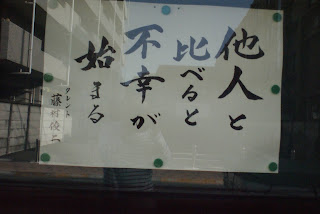 他人と
比べると
不幸が
始まる
タレント